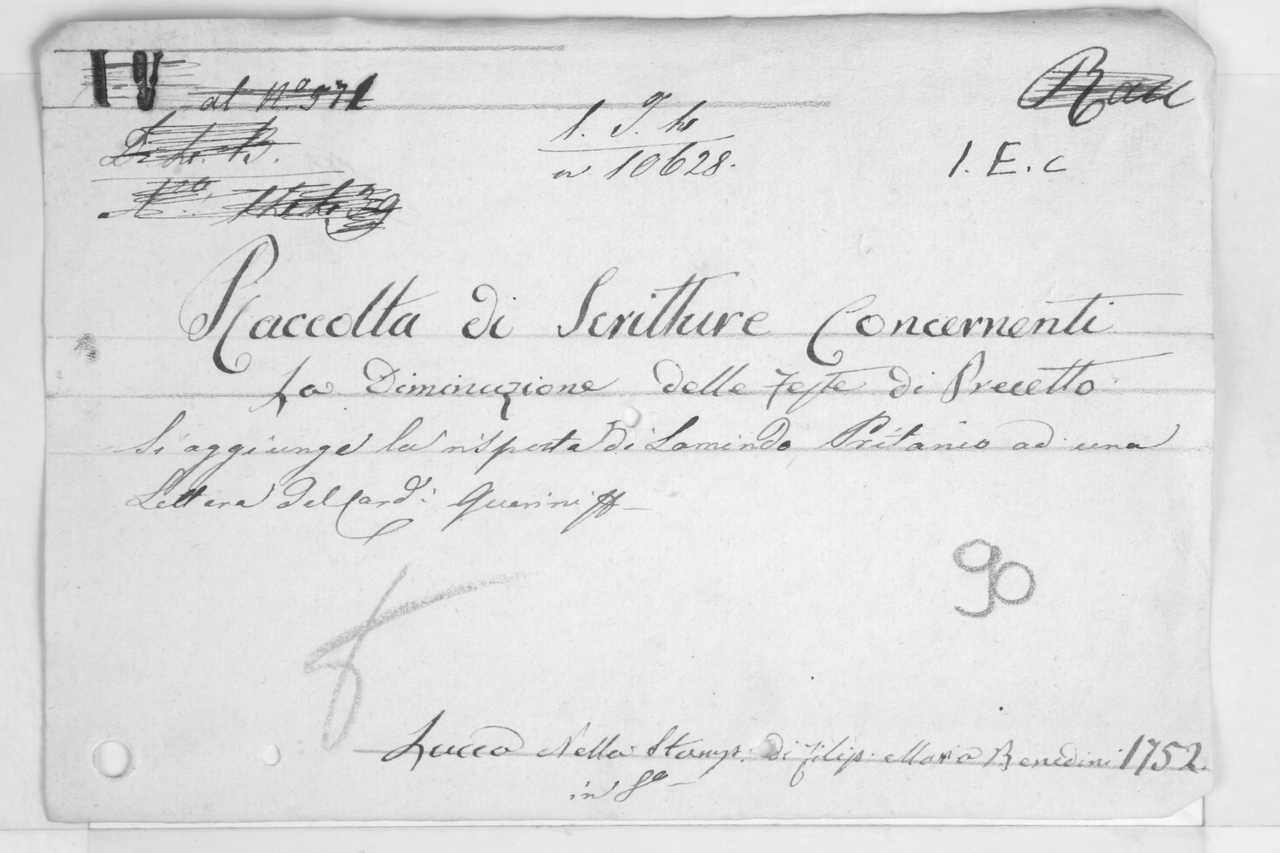 IV al Nº 571
Rac
1. E. c
10628.
Raccolta di Scritture Concernenti
La Diminuzione delle Feste di Precetto
Si aggiunge la risposta di Lamindo Pritanio ad una
Lettera del Card. Querini
90
Lucca Nella Stamp. di Filip. Maria Benedini 1752.
in 8º